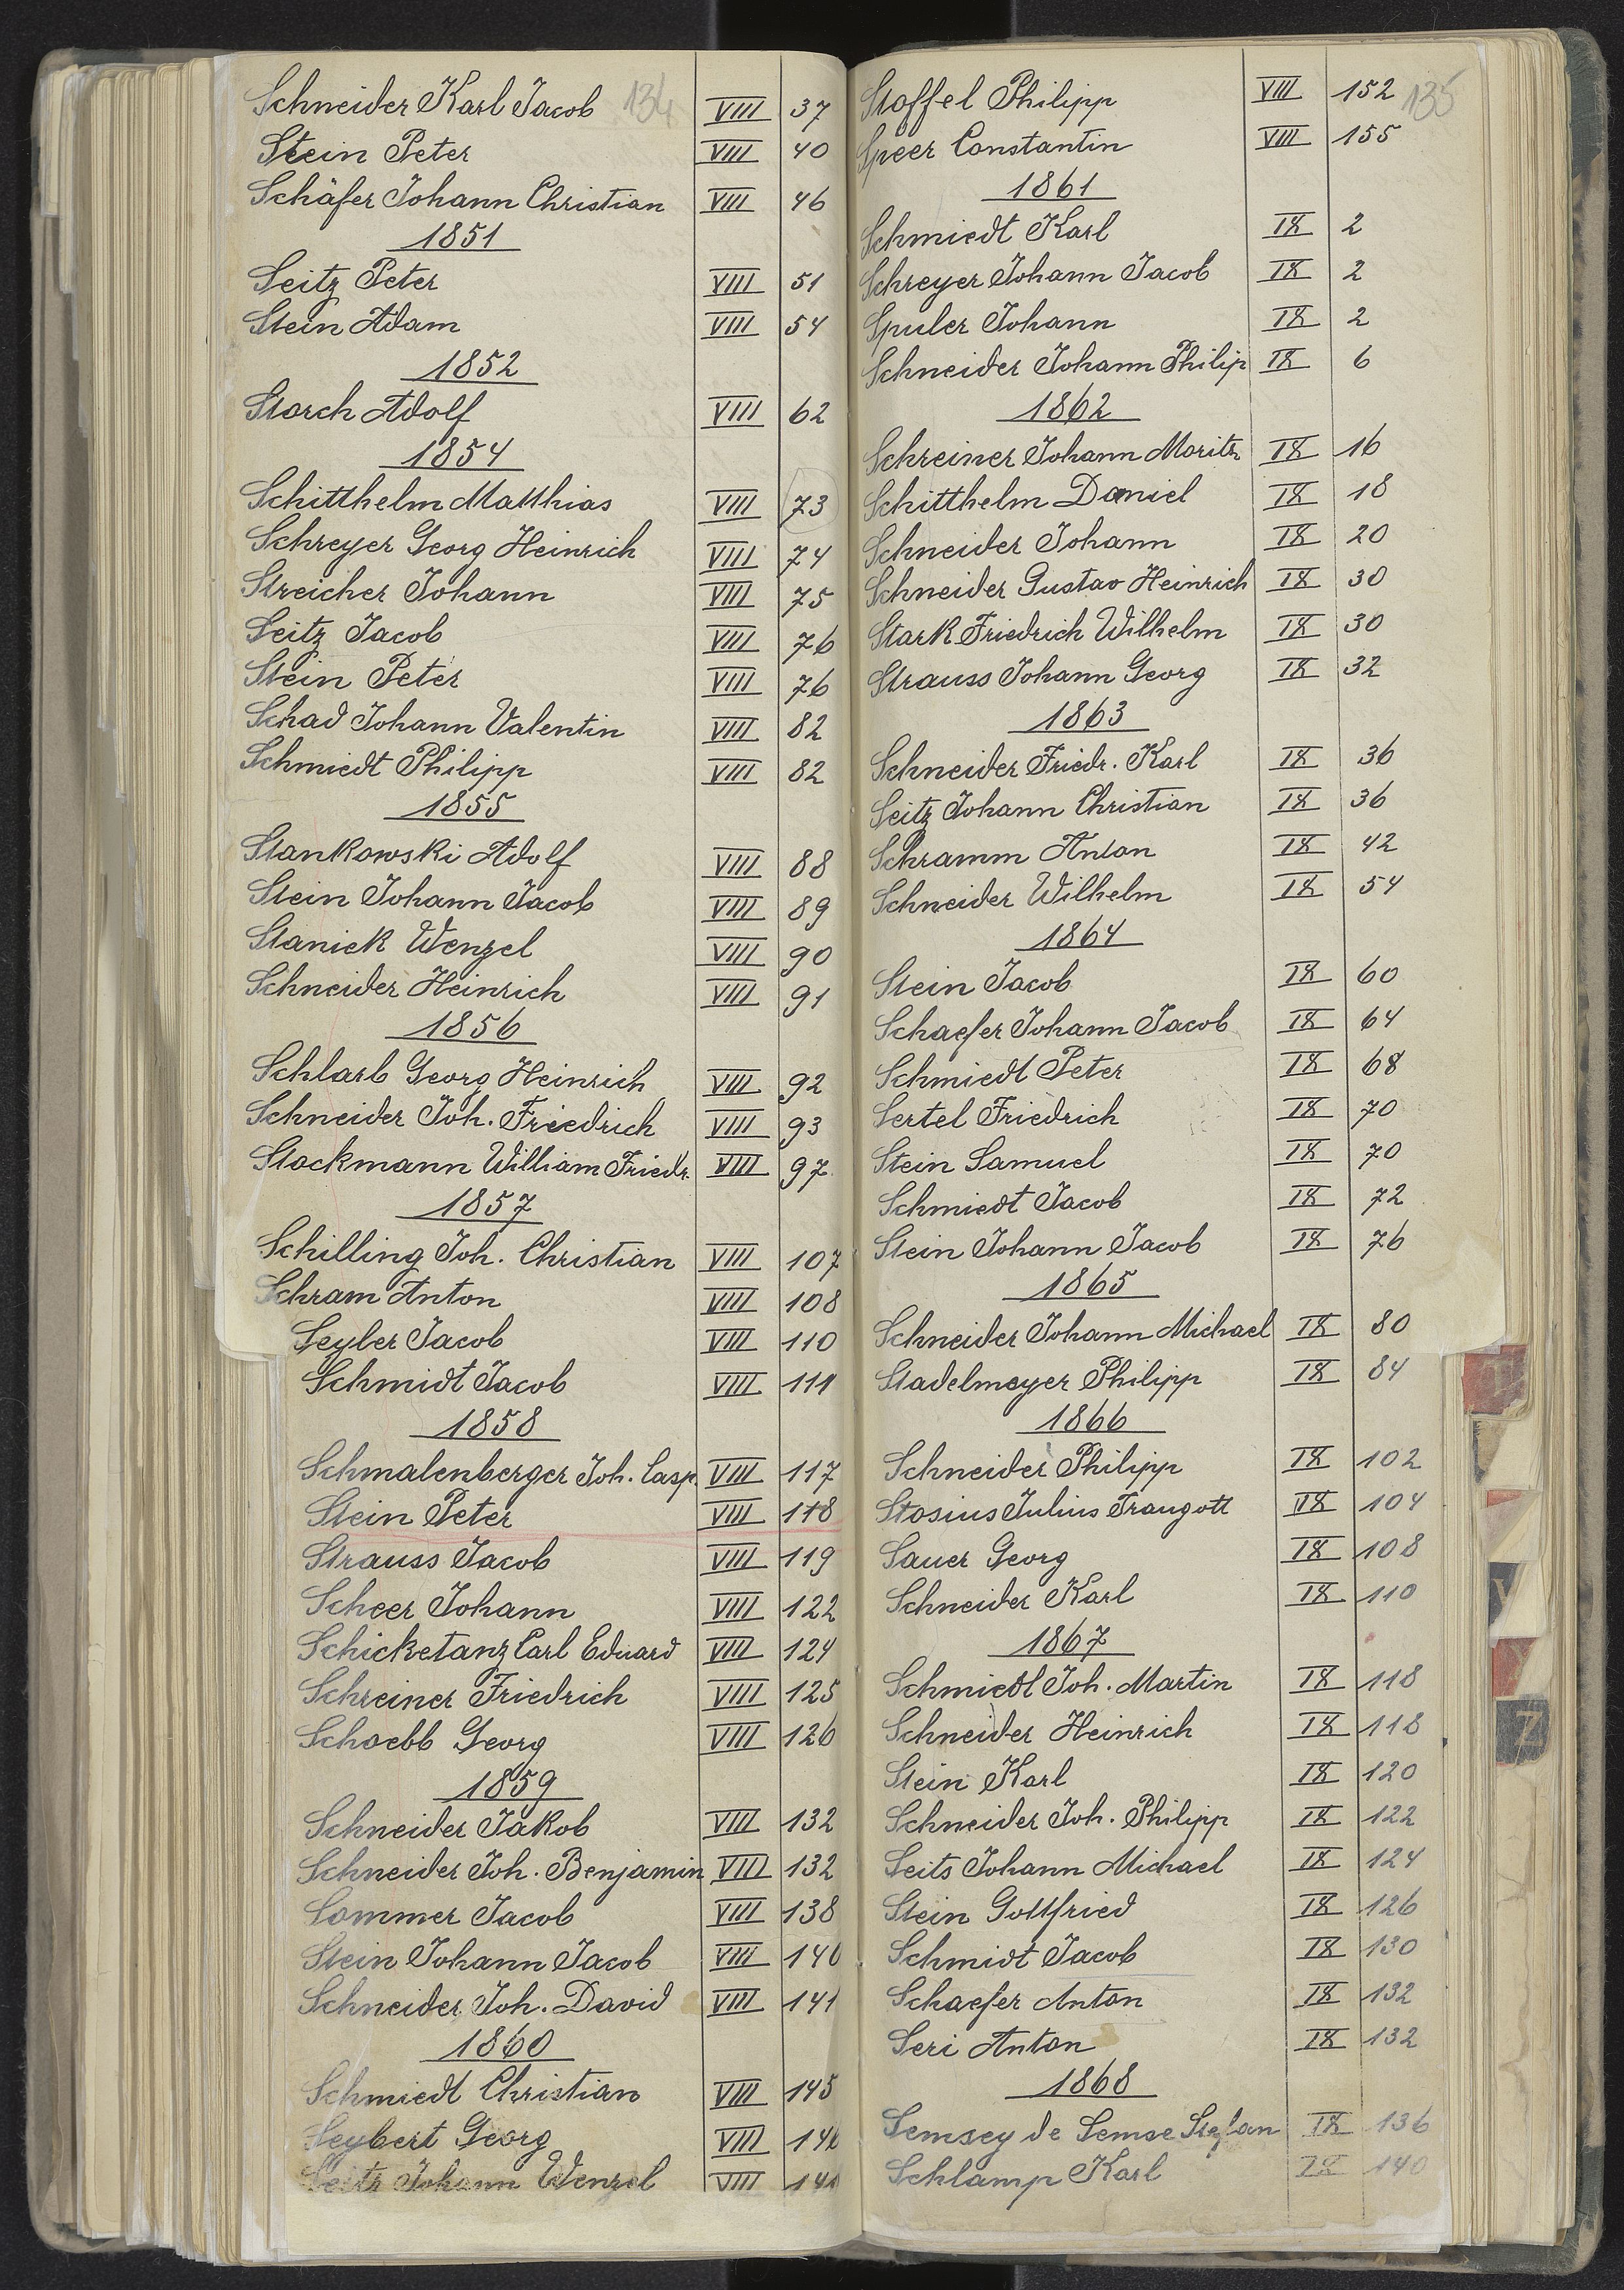 Schneider Karl Jacob 134 VIII 37
Stein Peter VIII 40
Schäfer Johann Christian VIII 46
1851
Seitz Peter VIII 51
Stein Adam VIII 54
1852
Storch Adolf VIII 62
1854
Schitthelm Matthias VIII 73
Schreyer Georg Heinrich VIII 74
Streicher Johann VIII 75
Seitz Jacob VIII 76
Stein Peter VIII 76
Schad Johann Valentin VIII 82
Schmiedt Philipp VIII 82
1855
Stankowski Adolf VIII 88
Stein Johann Jacob VIII 89
Staniek Wenzel VIII 90
Schneider Heinrich VIII 91
1856
Schlarb Georg Heinrich VIII 92
Schneider Joh. Friedrich VIII 93
Stockmann William Friedr. VIII 97
1857
Schilling Joh. Christian VIII 107
Schram Anton VIII 108
Seyler Jacob VIII 110
Schmidt Jacob VIII 111
1858
Schmalenberger Joh. Casp. VIII 117
Stein Peter VIII 118
Strauss Jacob VIII 119
Scheer Johann VIII 122
Schicketanz Carl Eduard VIII 124
Schreiner Friedrich VIII 125
Schoebb Georg VIII 126
1859
Schneider Jakob VIII 132
Schneider Joh. Benjamin VIII 132
Sommer Jacob VIII 138
Stein Johann Jacob VIII 140
Schneider Joh. David VIII 141
1860
Schmiedt Christian VIII 145
Seybert Georg VIII
Seitz Johann Wenzel VIII
Stoffel Philipp VIII 152 135
Speer Constantin VIII 155
1861
Schmiedt Karl IX 2
Schreyer Johann Jacob IX 2
Spuler Johann IX 2
Schneider Johann Philip IX 6
1862
Schreiner Johann Moritz IX 16
Schitthelm Daniel IX 18
Schneider Johann IX 20
Schneider Gustav Heinrich IX 30
Stark Friedrich Wilhelm IX 30
Strauss Johann Georg IX 32
1863
Schneider Friedr. Karl IX 36
Seitz Johann Christian IX 36
Schramm Anton IX 42
Schneider Wilhelm IX 54
1864
Stein Jacob IX 60
Schaefer Johann Jacob IX 64
Schmiedt Peter IX 68
Sertel Friedrich IX 70
Stein Samuel IX 70
Schmiedt Jacob IX 72
Stein Johann Jacob IX 76
1865
Schneider Johann Michael IX 80
Stadelmeyer Philipp IX 84
1866
Schneider Philipp IX 102
Stosius Julius Traugott IX 104
Sauer Georg IX 108
Schneider Karl IX 110
1867
Schmiedt Joh. Martin IX 118
Schneider Heinrich IX 118
Stein Karl IX 120
Schneider Joh. Philipp IX 122
Seits Johann Michael IX 124
Stein Gottfried IX 126
Schmidt Jacob IX 130
Schaefer Anton IX 132
Seri Anton IX 132
1868
Semsey de Semse Stefan IX 136
Schlamp Karl IX 140
V
Z